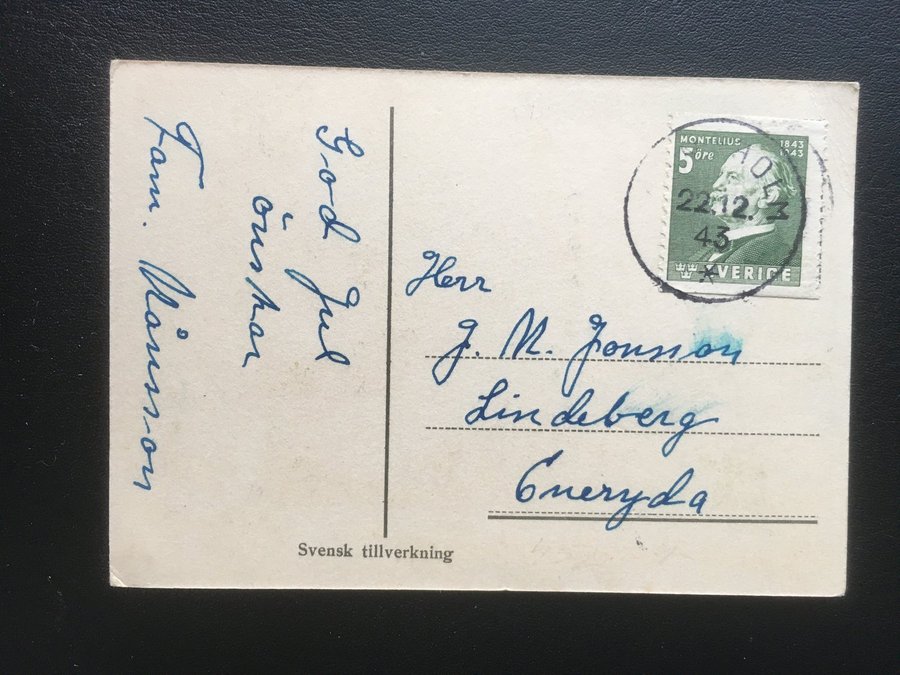 God Jul
önskar
Fam. Månsson
Svensk tillverkning
MONTELIUS 1843
5 öre 1943
SVERIGE
22.12.
43
Herr
J. M. Jonsson
Lindeberg
Eneryda